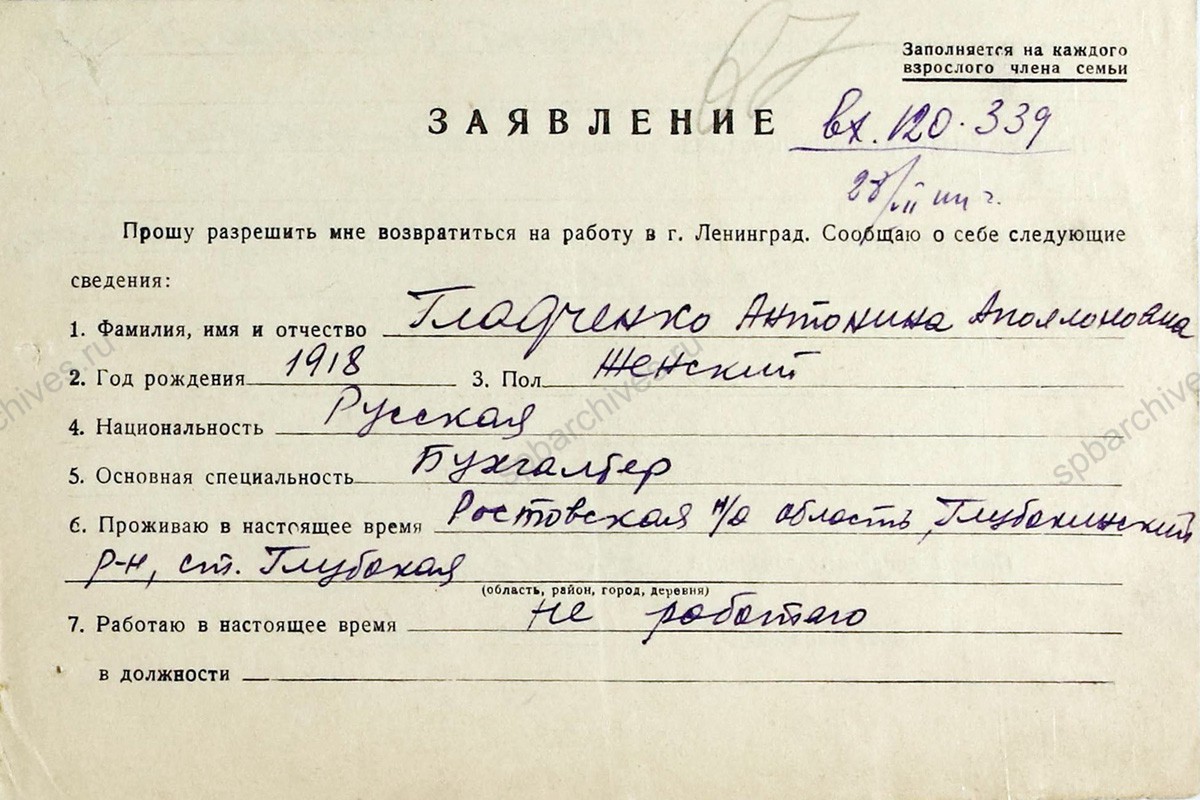 67
Заполняется на каждого
взрослого члена семьи
ЗАЯВЛЕНИЕ вх. 120.339
28/II
Прошу разрешить мне возвратиться на работу в г. Ленинград. Сообщаю о себе следующие
сведения:
1. Фамилия, имя и отчество Гладченко Антонина Апоялоновна
2. Год рождения 1918 3. Пол Женский
4. Национальность Русская
5. Основная специальность Бухгалтер
6. Проживаю в настоящее время Ростовская н/Д область, Глубокинский
р-н, ст. Глубокая
(область, район, город, деревня)
7. Работаю в настоящее время не работаю
в должности
spbarchives.ru